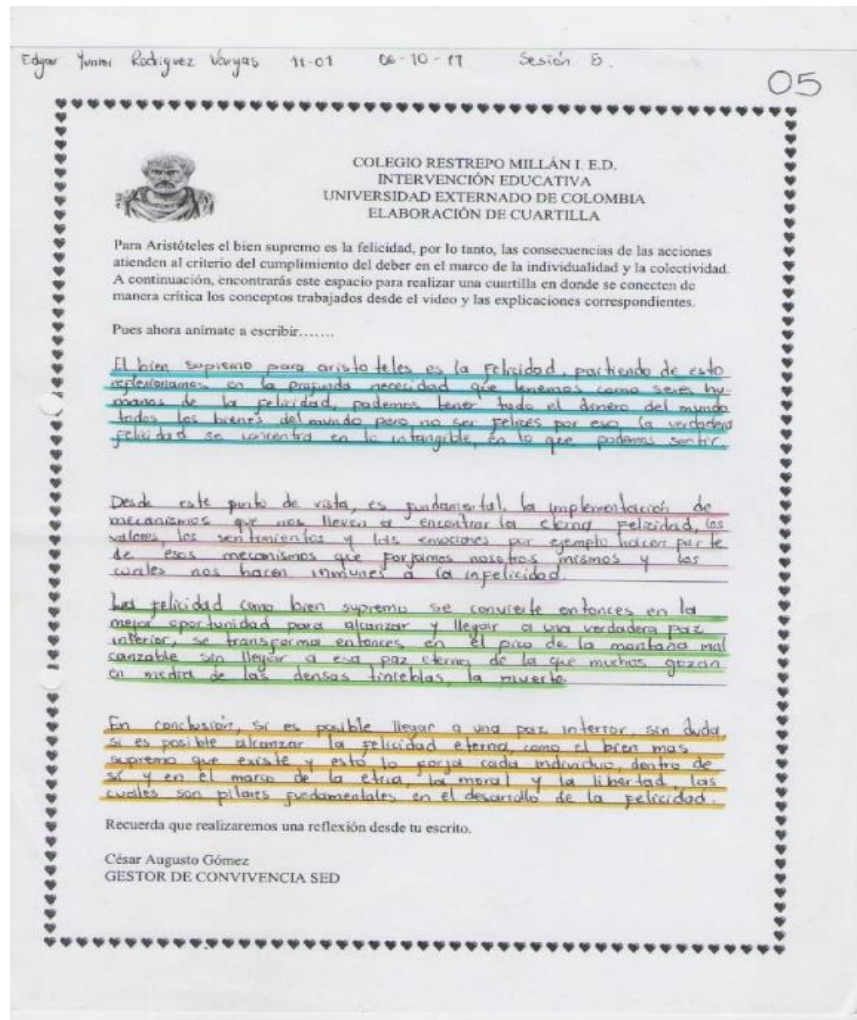 Edgar Yunior Rodriguez Vargas 11-01 06-10-17 Sesión 5.
05
COLEGIO RESTREPO MILLÁN I. E.D.
INTERVENCIÓN EDUCATIVA
UNIVERSIDAD EXTERNADO DE COLOMBIA
ELABORACIÓN DE CUARTILLA
Para Aristóteles el bien supremo es la felicidad, por lo tanto, las consecuencias de las acciones
atienden al criterio del cumplimiento del deber en el marco de la individualidad y la colectividad.
A continuación, encontrarás este espacio para realizar una cuartilla en donde se conecten de
manera crítica los conceptos trabajados desde el video y las explicaciones correspondientes.
Pues ahora anímate a escribir…….
El bien supremo para aristoteles es la felicidad, partiendo de esto
reflexionamos en la profunda necesidad que tenemos como seres hu-
manos de la felicidad, podemos tener todo el dinero del mundo
todos los bienes del mundo pero no ser felices por eso, la verdadera
felicidad se concentra en lo intangible, en lo que podemos sentir.
Desde este punto de vista, es fundamental, la implementación de
mecanismos que nos lleven a encontrar la eterna felicidad, los
valores, los sentimientos y las emociones por ejemplo hacen parte
de esos mecanismos que forjamos nosotros mismos y los
cuales nos hacen inmunes a la infelicidad.
La felicidad como bien supremo se convierte entonces en la
mejor oportunidad para alcanzar y llegar a una verdadera paz
interior, se transforma entonces en el pico de la montaña mal
canzable sin llegar a esa paz eterna de la que muchos gozan
en medio de las densas tinieblas, la muerte.
En conclusión, si es posible llegar a una paz interior, sin duda,
si es posible alcanzar la felicidad eterna, como el bien mas
supremo que existe y esto lo forja cada individuo, dentro de
sí y en el marco de la etica, la moral y la libertad, las
cuales son pilares fundamentales en el desarrollo de la felicidad.
Recuerda que realizaremos una reflexión desde tu escrito.
César Augusto Gómez
GESTOR DE CONVIVENCIA SED